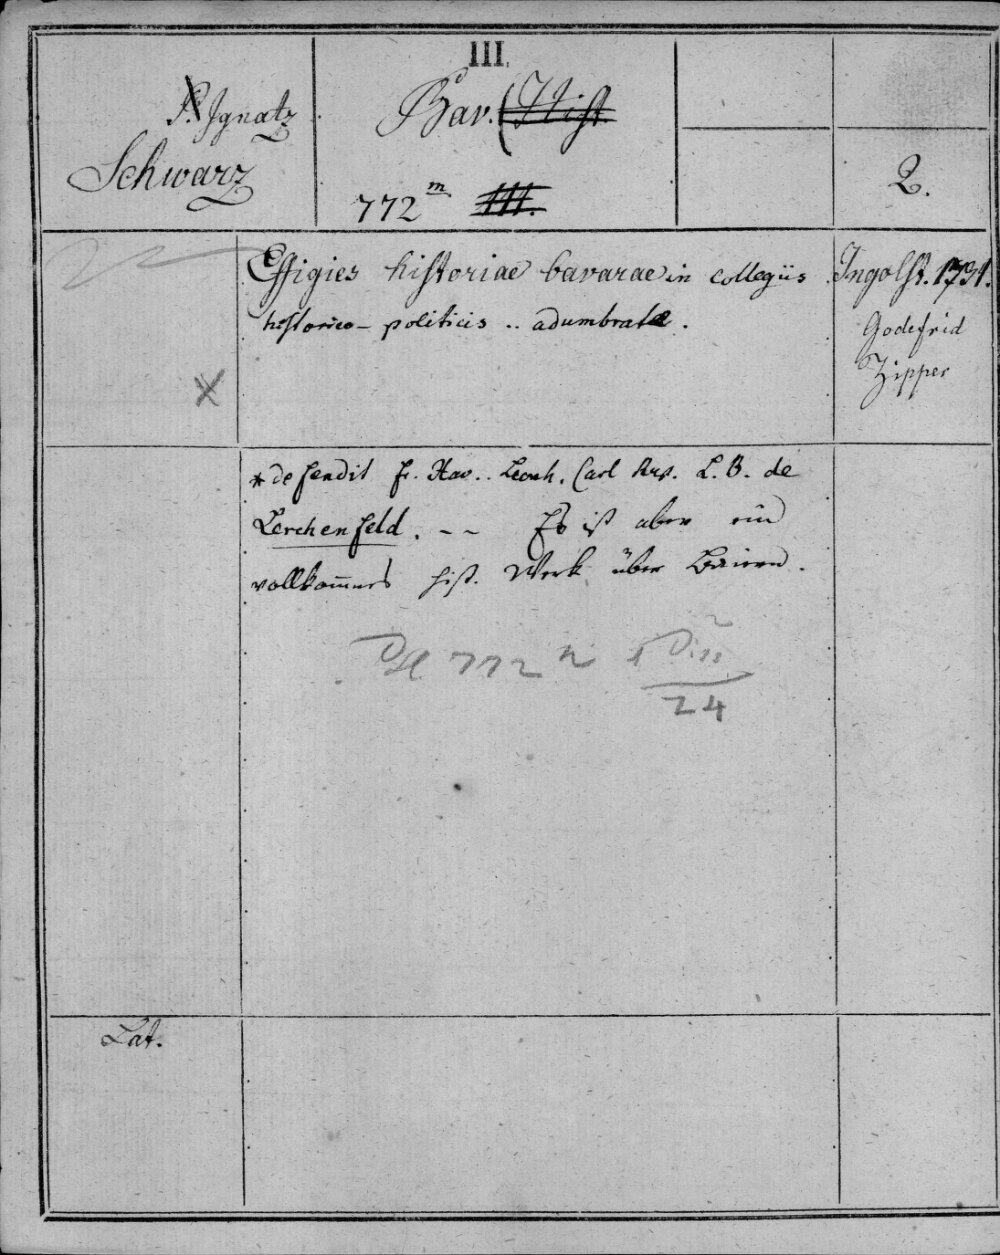 III.
P. Ignatz
Schwarz
Bav. (Hist.
772 m III.
2.
Effigies historiae bavarae in collegiis
historico-politicis .. adumbrata.
Ingolst. 1731.
Godefrid
Zipper
* defendit Fr. Xav.. Leonh. Carl L. B. de
Lerchenfeld. -- Es ist aber ein
vollkomnes hist. Werk über Baiern.
772
24
Lat.